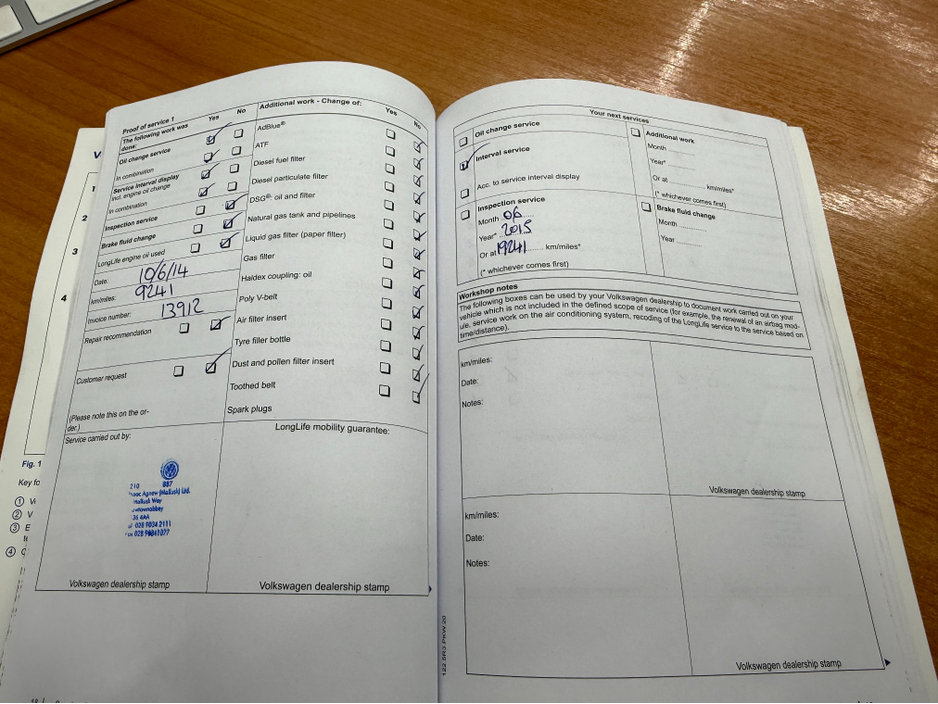 Proof of service 1
The following work was done:
Yes
No
Oil change service
In combination
Service interval display
incl. engine oil change
In combination
Inspection service
Brake fluid change
LongLife engine oil used
Date:
10/6/14
km/miles:
9241
Invoice number:
13912
Repair recommendation
Customer request
(Please note this on the or-
der.)
Additional work - Change of:
Yes
No
AdBlue®
ATF
Diesel fuel filter
Diesel particulate filter
DSG®: oil and filter
Natural gas tank and pipelines
Liquid gas filter (paper filter)
Gas filter
Haldex coupling: oil
Poly V-belt
Air filter insert
Tyre filler bottle
Dust and pollen filter insert
Toothed belt
Spark plugs
Service carried out by:
LongLife mobility guarantee:
210 887
Isaac Agnew (Mallusk) Ltd.
Mallusk Way
36 4AA
028 9034 2111
Volkswagen dealership stamp
Volkswagen dealership stamp
Your next services
Oil change service
Interval service
Acc. to service interval display
Inspection service
Month 06
Year* 2015
Or at 19241 km/miles*
(* whichever comes first)
Additional work
Month
Year*
Or at km/miles*
(* whichever comes first)
Brake fluid change
Month
Year
Workshop notes
The following boxes can be used by your Volkswagen dealership to document work carried out on your
vehicle which is not included in the defined scope of service (for example, the renewal of an airbag mod-
ule, service work on the air conditioning system, recoding of the LongLife service to the service based on
time/distance).
km/miles:
Date:
Notes:
Volkswagen dealership stamp
km/miles:
Date:
Notes:
Volkswagen dealership stamp
122.5R3.PKW.20
1
2
3
4
Fig. 1
Key fo
1 V
2 V
3 E
4